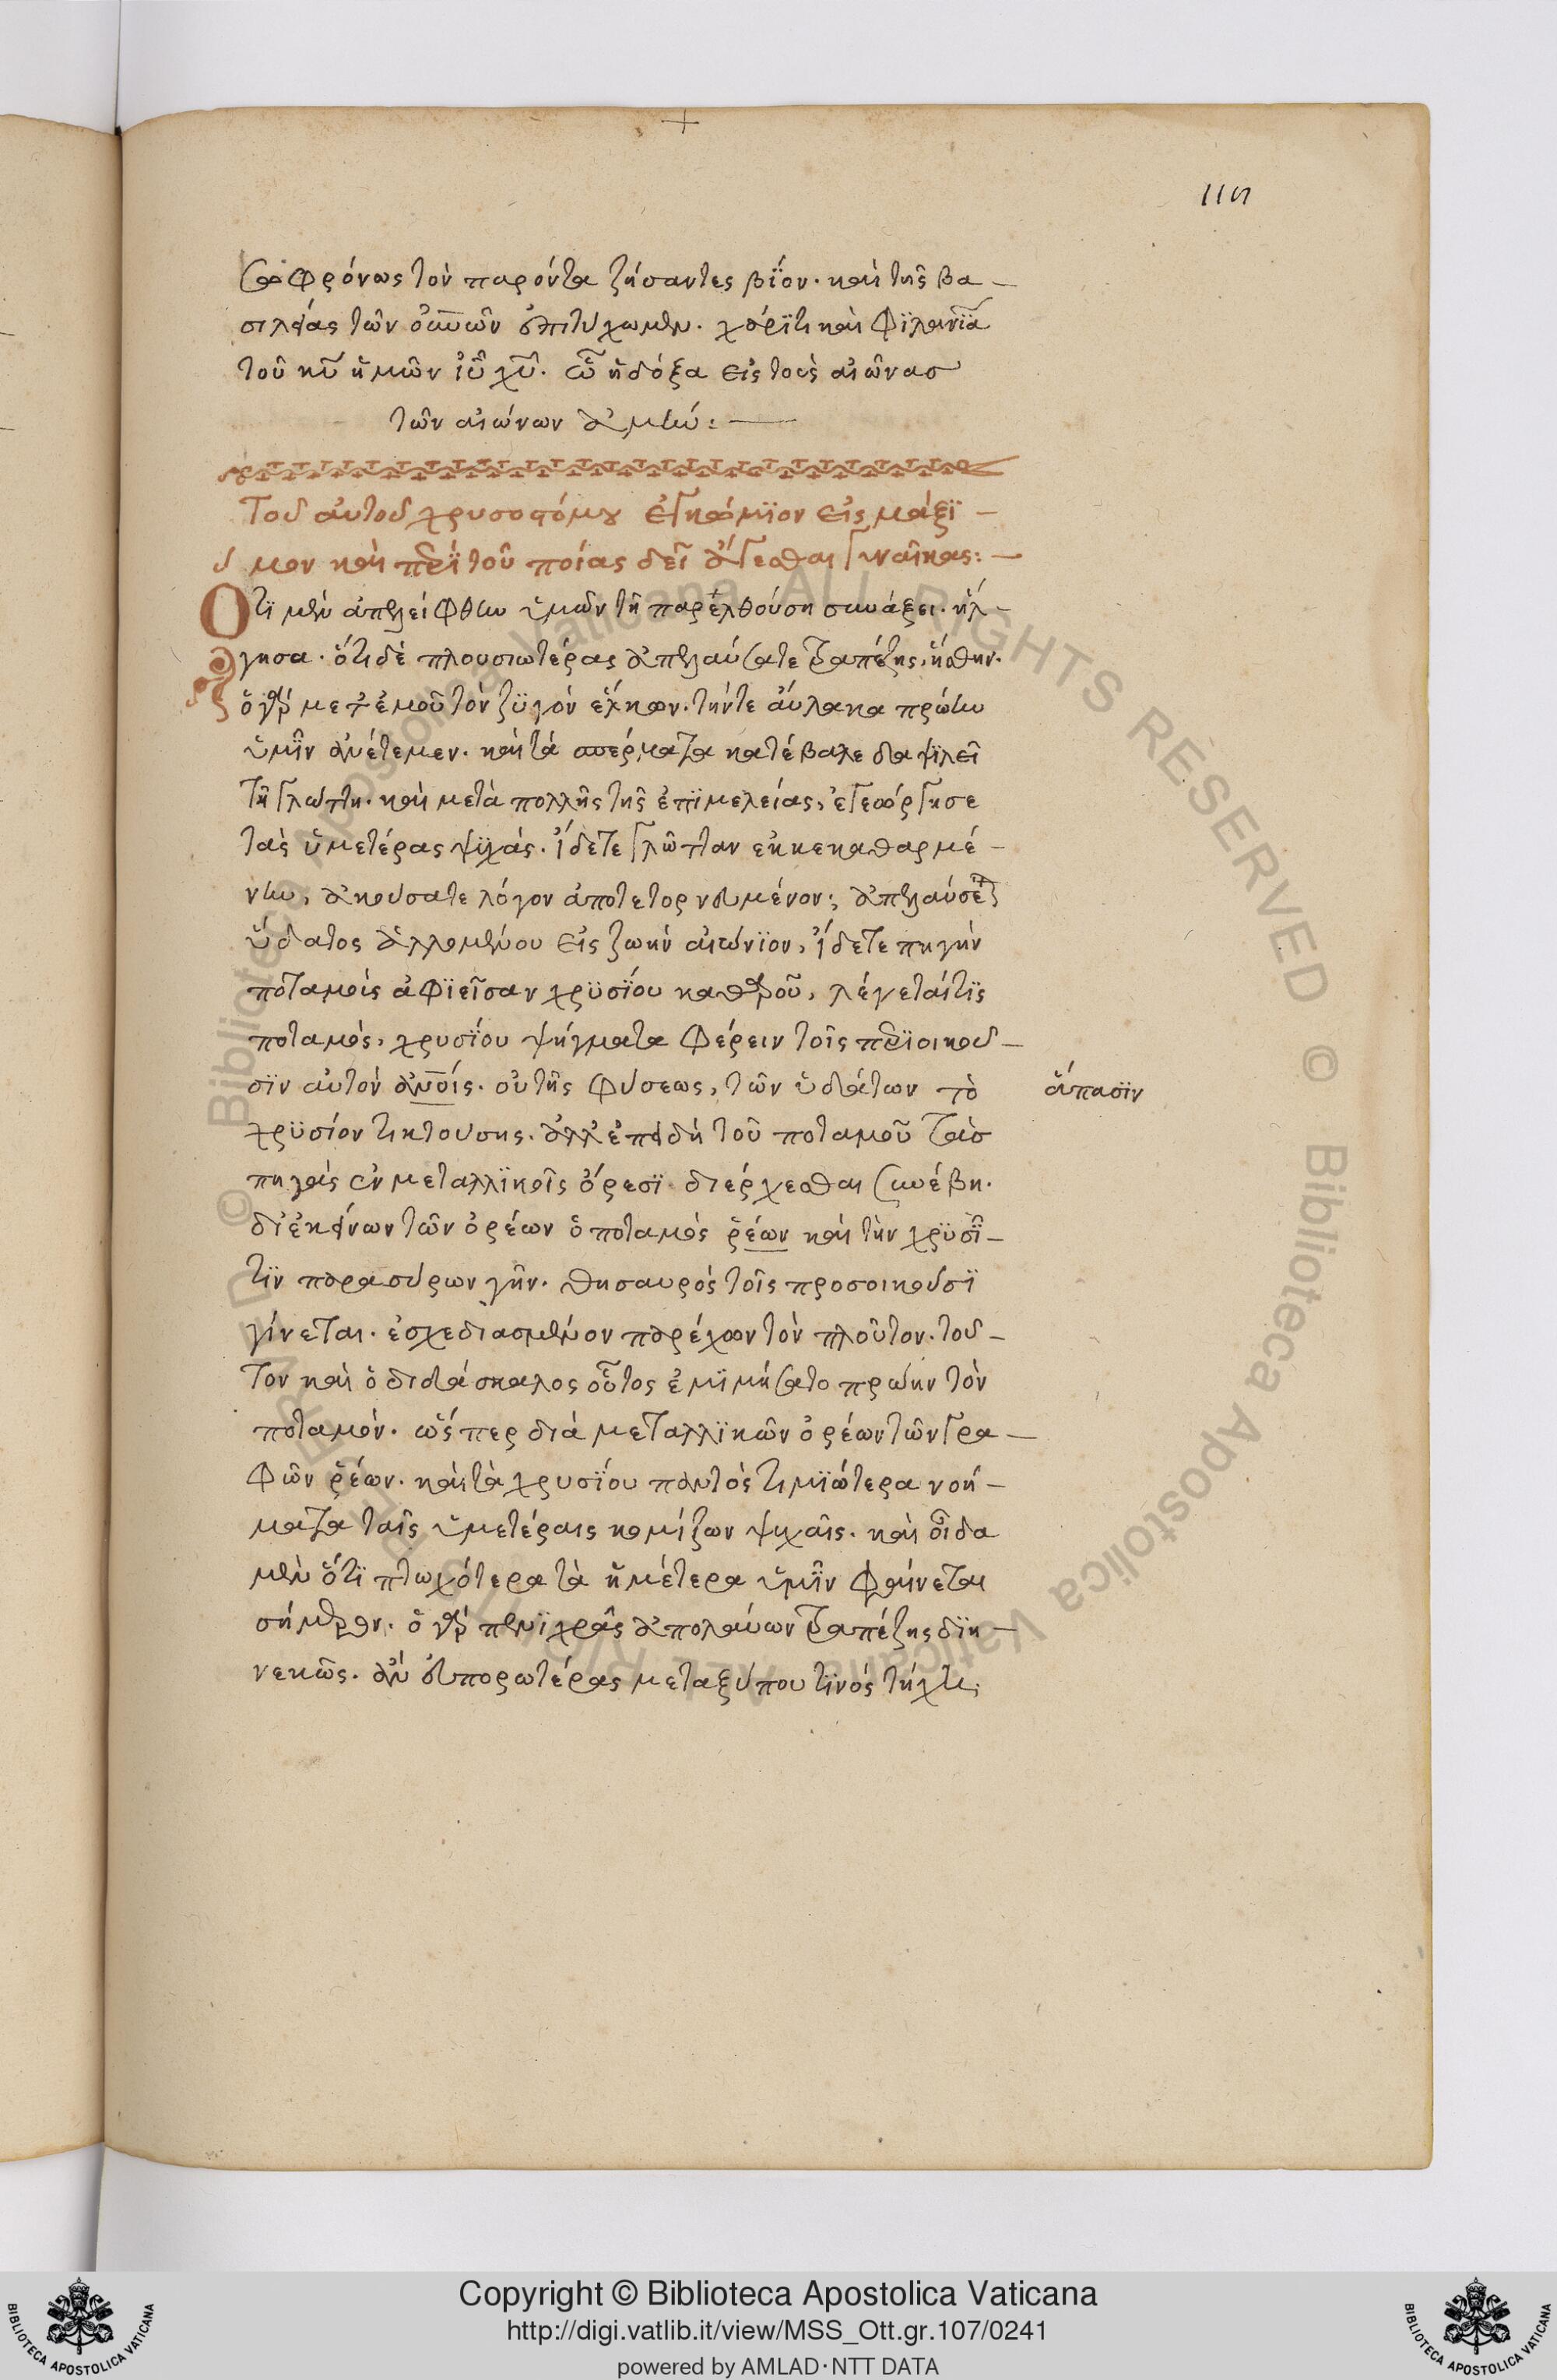 117
σωφρόνως τὸν παρόντα ζήσαντες βίον. καὶ τῆς βα-
σιλείας τῶν οὐνῶν ἐπιτύχωμεν. χάριτι καὶ φιλανΐα
τοῦ κῦ ἡμῶν ἰῦ χῦ. ᾧ ἡ δόξα εἰς τοὺς αἰῶνασ
τῶν αἰώνων ἀμήν:—
Τοῦ αὐτοῦ χρυσοστόμου ἐγκώμϊον εἰς μάξϊ-
μον καὶ περὶ τοῦ ποίας δεῖ ἄγεσθαι γυναῖκας:—
Ὅτϊ μὲν ἀπελείφθην ὑμῶν τῆ παρελθούση συνάξει. ἤλ-
γησα. ὅτι δὲ πλουσιωτέρας ἀπελαύσατε τραπέζης, ἥσθην.
ὁ γάρ μετ ἐμοῦ τὸν ζϋγόν ἕλκων. τήντε αὔλακα πρώην
ὑμῖν ἀνέτεμεν. καὶ τὰ σπέρματα κατέβαλε δαψϊλεῖ
τῆ γλώττη. καὶ μετὰ πολλῆς τῆς ἐπϊμελείας, ἐγεώργησε
τὰς ὑμετέρας ψϋχάς. ἴδετε γλῶτταν ἐκκεκαθαρμέ-
νην, ἀκούσατε λόγον ἀποτετορνευμένον; ἀπελαύσετε
ὕδατος ἀλλομένου εἰς ζωὴν αἰώνϊον, ἴδετε πηγήν
ποταμοὺς ἀφϊεῖσαν χρϋσΐου καθαροῦ, λέγεταί τϊς
ποταμός, χρυσΐου ψήγματα φέρειν τοῖς περϊοικοῦ-
σϊν αὐτὸν ἀνοις. οὐ τῆς φύσεως, τῶν ὑδάτων τὸ
ἅπασϊν
χρϋσίον τικτούσης. ἀλλ ἐπειδὴ τοῦ ποταμοῦ τὰσ
πηγάς ἐν μεταλλϊκοῖς ὄρεσϊ διέρχεσθαι συνέβη.
δι ἐκείνων τῶν ὀρέων ὁ ποταμός ῥέων καὶ τὴν χρϋσῖ-
τϊν παρασύρων γῆν. θησαυρός τοῖς προσοικοῦσϊ
γίνεται. ἐσχεδιασμένον παρέχων τὸν πλοῦτον. τοῦ-
τον καὶ ὁ διδάσκαλος οὗτος ἐμϊμήσατο πρώην τὸν
ποταμόν. ὥσπερ διὰ μεταλλϊκῶν ὀρέων τῶν γρα-
φῶν ῥέων. καὶ τὰ χρυσΐου παντός τιμϊώτερα νοή-
ματα ταῖς ὑμετέραις κομίζων ψυχαῖς. καὶ οἶδα
μὲν ὅτϊ πτωχότερα τὰ ἡμέτερα ὑμῖν φαίνεται
σήμερον. ὁ γάρ πενϊχρᾶς ἀπολαύων τραπέζης διη-
νεκῶς. ἂν εὐπορωτέρας μεταξύ που τϊνός τύχη,
© Biblioteca Apostolica Vaticana ALL RIGHTS RESERVED © Biblioteca Apostolica Vaticana ALL RIGHTS RESERVED
Copyright © Biblioteca Apostolica Vaticana
http://digi.vatlib.it/view/MSS_Ott.gr.107/0241
powered by AMLAD·NTT DATA
BIBLIOTECA APOSTOLICA VATICANA
BIBLIOTECA APOSTOLICA VATICANA